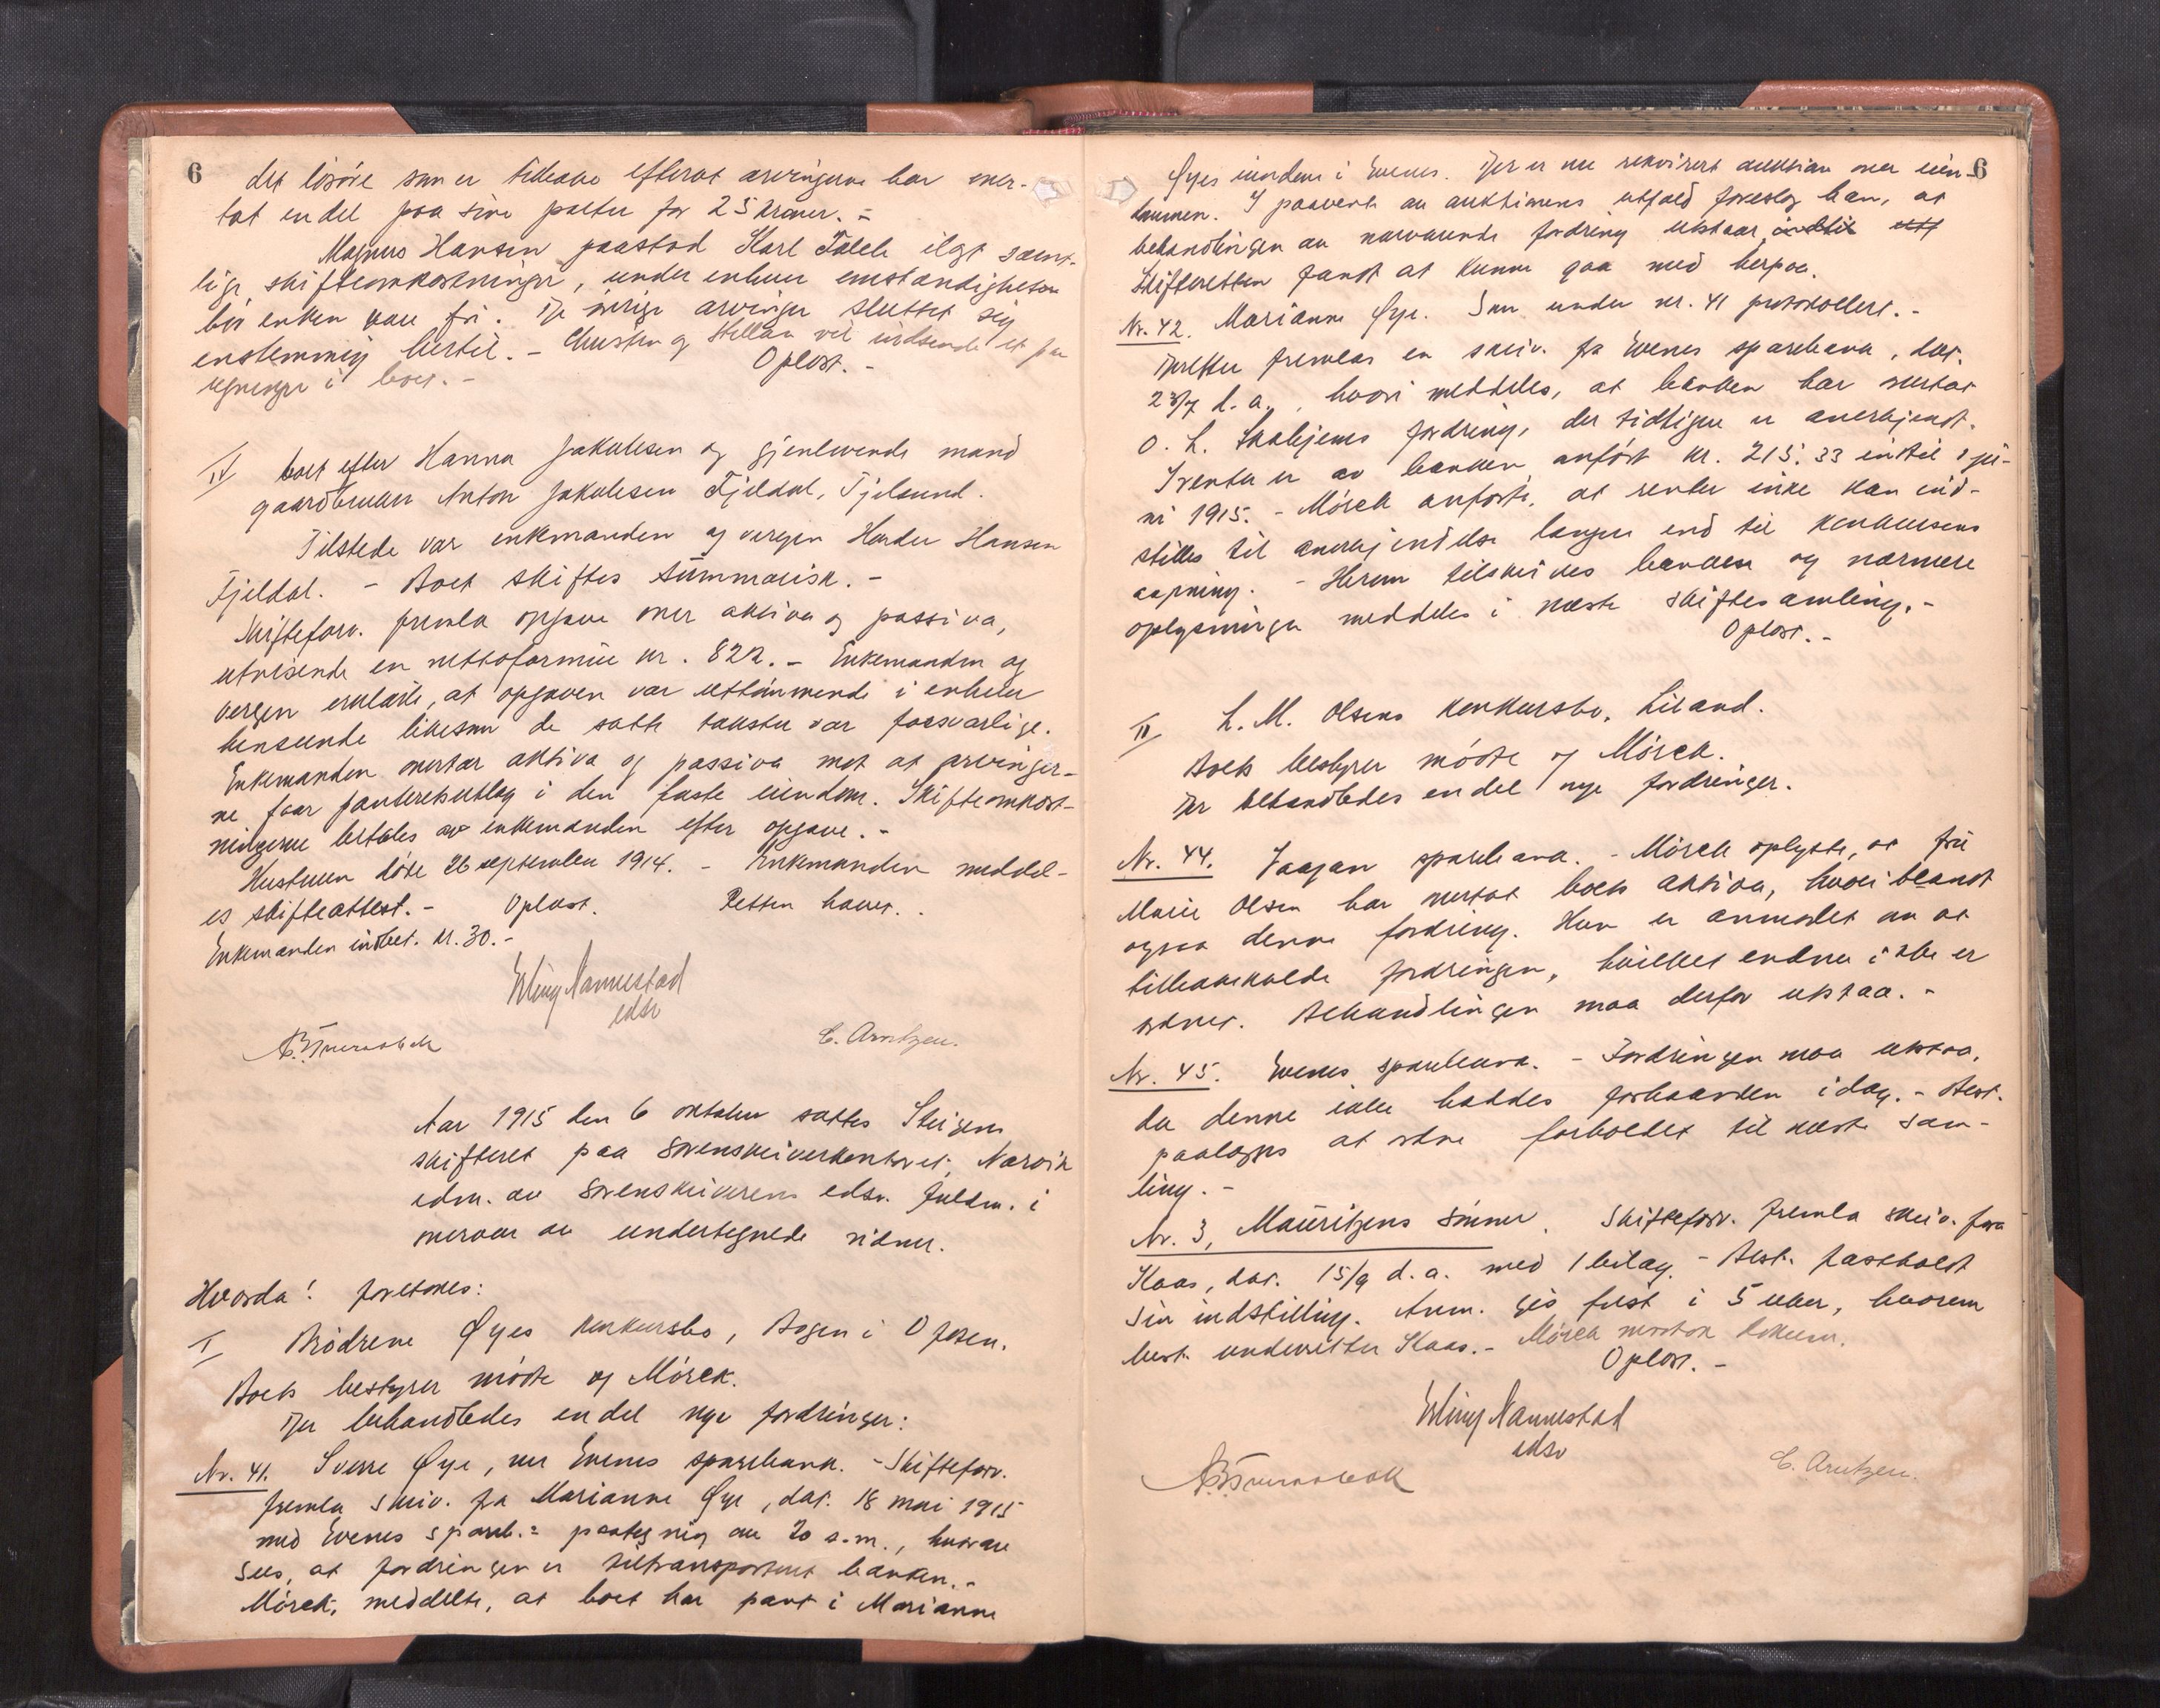 6
det løsøre som er tilbake efterat arvingerne har over-
tat en del paa sine parter for 25 kroner. -
Magnus Hansen paastod Karl ilagt samt-
lige skifteomkostninger, under enhver omstændigheten
bør enken være fri. De øvrige arvinger sluttet sig
enstemmig hertil. - og vil indsende et par
regninger i boet. -
Opløst. -
IV boet efter Hanna Jakobsen og gjenlevende mand
gaardbruker Anton Jakobsen Fjeldal, Tjelsund.
Tilstede var enkemanden og vergen Hansen
Fjeldal. - Boet skiftes summarisk. -
Skifteforv. fremla opgave over aktiva og passiva,
utvisende en nettoformue kr. 822. - Enkemanden og
vergen erklærte, at opgaven var uttømmende i enhver
henseende likesom de satte takster var forsvarlige.
Enkemanden overtar aktiva og passiva mot at arvinger-
ne faar panteretsutlæg i den faste eiendom. Skifteomkost-
ningerne betales av enkemanden efter opgave. -
Hustruen døde 26 september 1914. - Enkemanden meddel-
es skifteattest. - Opløst. Retten hævet.
Enkemanden indbet. kr. 30. -
Erling Nannestad
edsv
E. Arntzen.
Aar 1915 den 6 oktober sattes Steigens
skifteret paa Sorenskriverkontoret, Narvik
adm. av sorenskriverens edsv. fuldm. i
overvær av undertegnede vidner.
Hvorda! foretokes:
I Brødrene Øyes konkursbo, Bogen i Ofoten.
Boets bestyrer møtte og Mörck.
Der behandledes en del nye fordringer:
Nr. 41. Sverre Øye, nu Evenes sparebank. - Skifteforv.
fremla skriv. fra Marianne Øye, dat. 18 mai 1915
med Evenes spareb.s paategning av 20 s.m., hvorav
sees, at fordringen er tiltransportert banken. -
Mörck meddelte, at boet har pant i Marianne
6
Øyes eiendom i Evenes. Der er nu rekvirert auktion over eien-
dommen. I paavente av auktionens utfald foreslog han, at
behandlingen av nærværende fordring utstaar indtil utf
Skifteretten fandt at kunne gaa med herpaa.
Nr. 42. Marianne Øye. Som under nr. 41 protokollert. -
Derefter fremlas en skriv. fra Evenes sparebank, dat.
23/7 d.a., hvori meddeles, at banken har overtat
O. L. Skobjems fordring, der tidligere er anerkjendt.
I renter er av banken anført kr. 215.33 indtil 1 ju-
ni 1915. - Mörck anførte, at renter ikke kan ind-
stilles til anerkjendelse længere end til konkursens
aapning. - Herom tilskrives banken og nærmere
oplysninger meddeles i næste skiftesamling. -
Opløst. -
II L. M. Olsens konkursbo, Liland.
Boets bestyrer møtte og Mörck.
Der behandledes en del nye fordringer.
Nr. 44. Vaagan sparebank. - Mörck oplyste, at fru
Marie Olsen har overtat boets aktiva, hvoriblandt
ogsaa denne fordring. Hun er anmodet om at
tilbakekalde fordringen, hvilket endnu ikke er
ordnet. Behandlingen maa derfor utstaa. -
Nr. 45. Evenes sparebank. - Fordringen maa utstaa,
da denne ikke haddes forhaanden idag. - Best.
paalægges at ordne forholdet til næste sam-
ling. -
Nr. 3, Mauritzens sønner. Skifteforv. fremla skriv. fra
Kaas, dat. 15/9 d.a. med 1 bilag. - Best. fastholdt
sin indstilling. Anm. gis frist i 5 uker, hvorom
best. underretter Kaas. - Mörck mottok dokum.
Opløst. -
Erling Nannestad
edsv
E. Arntzen.